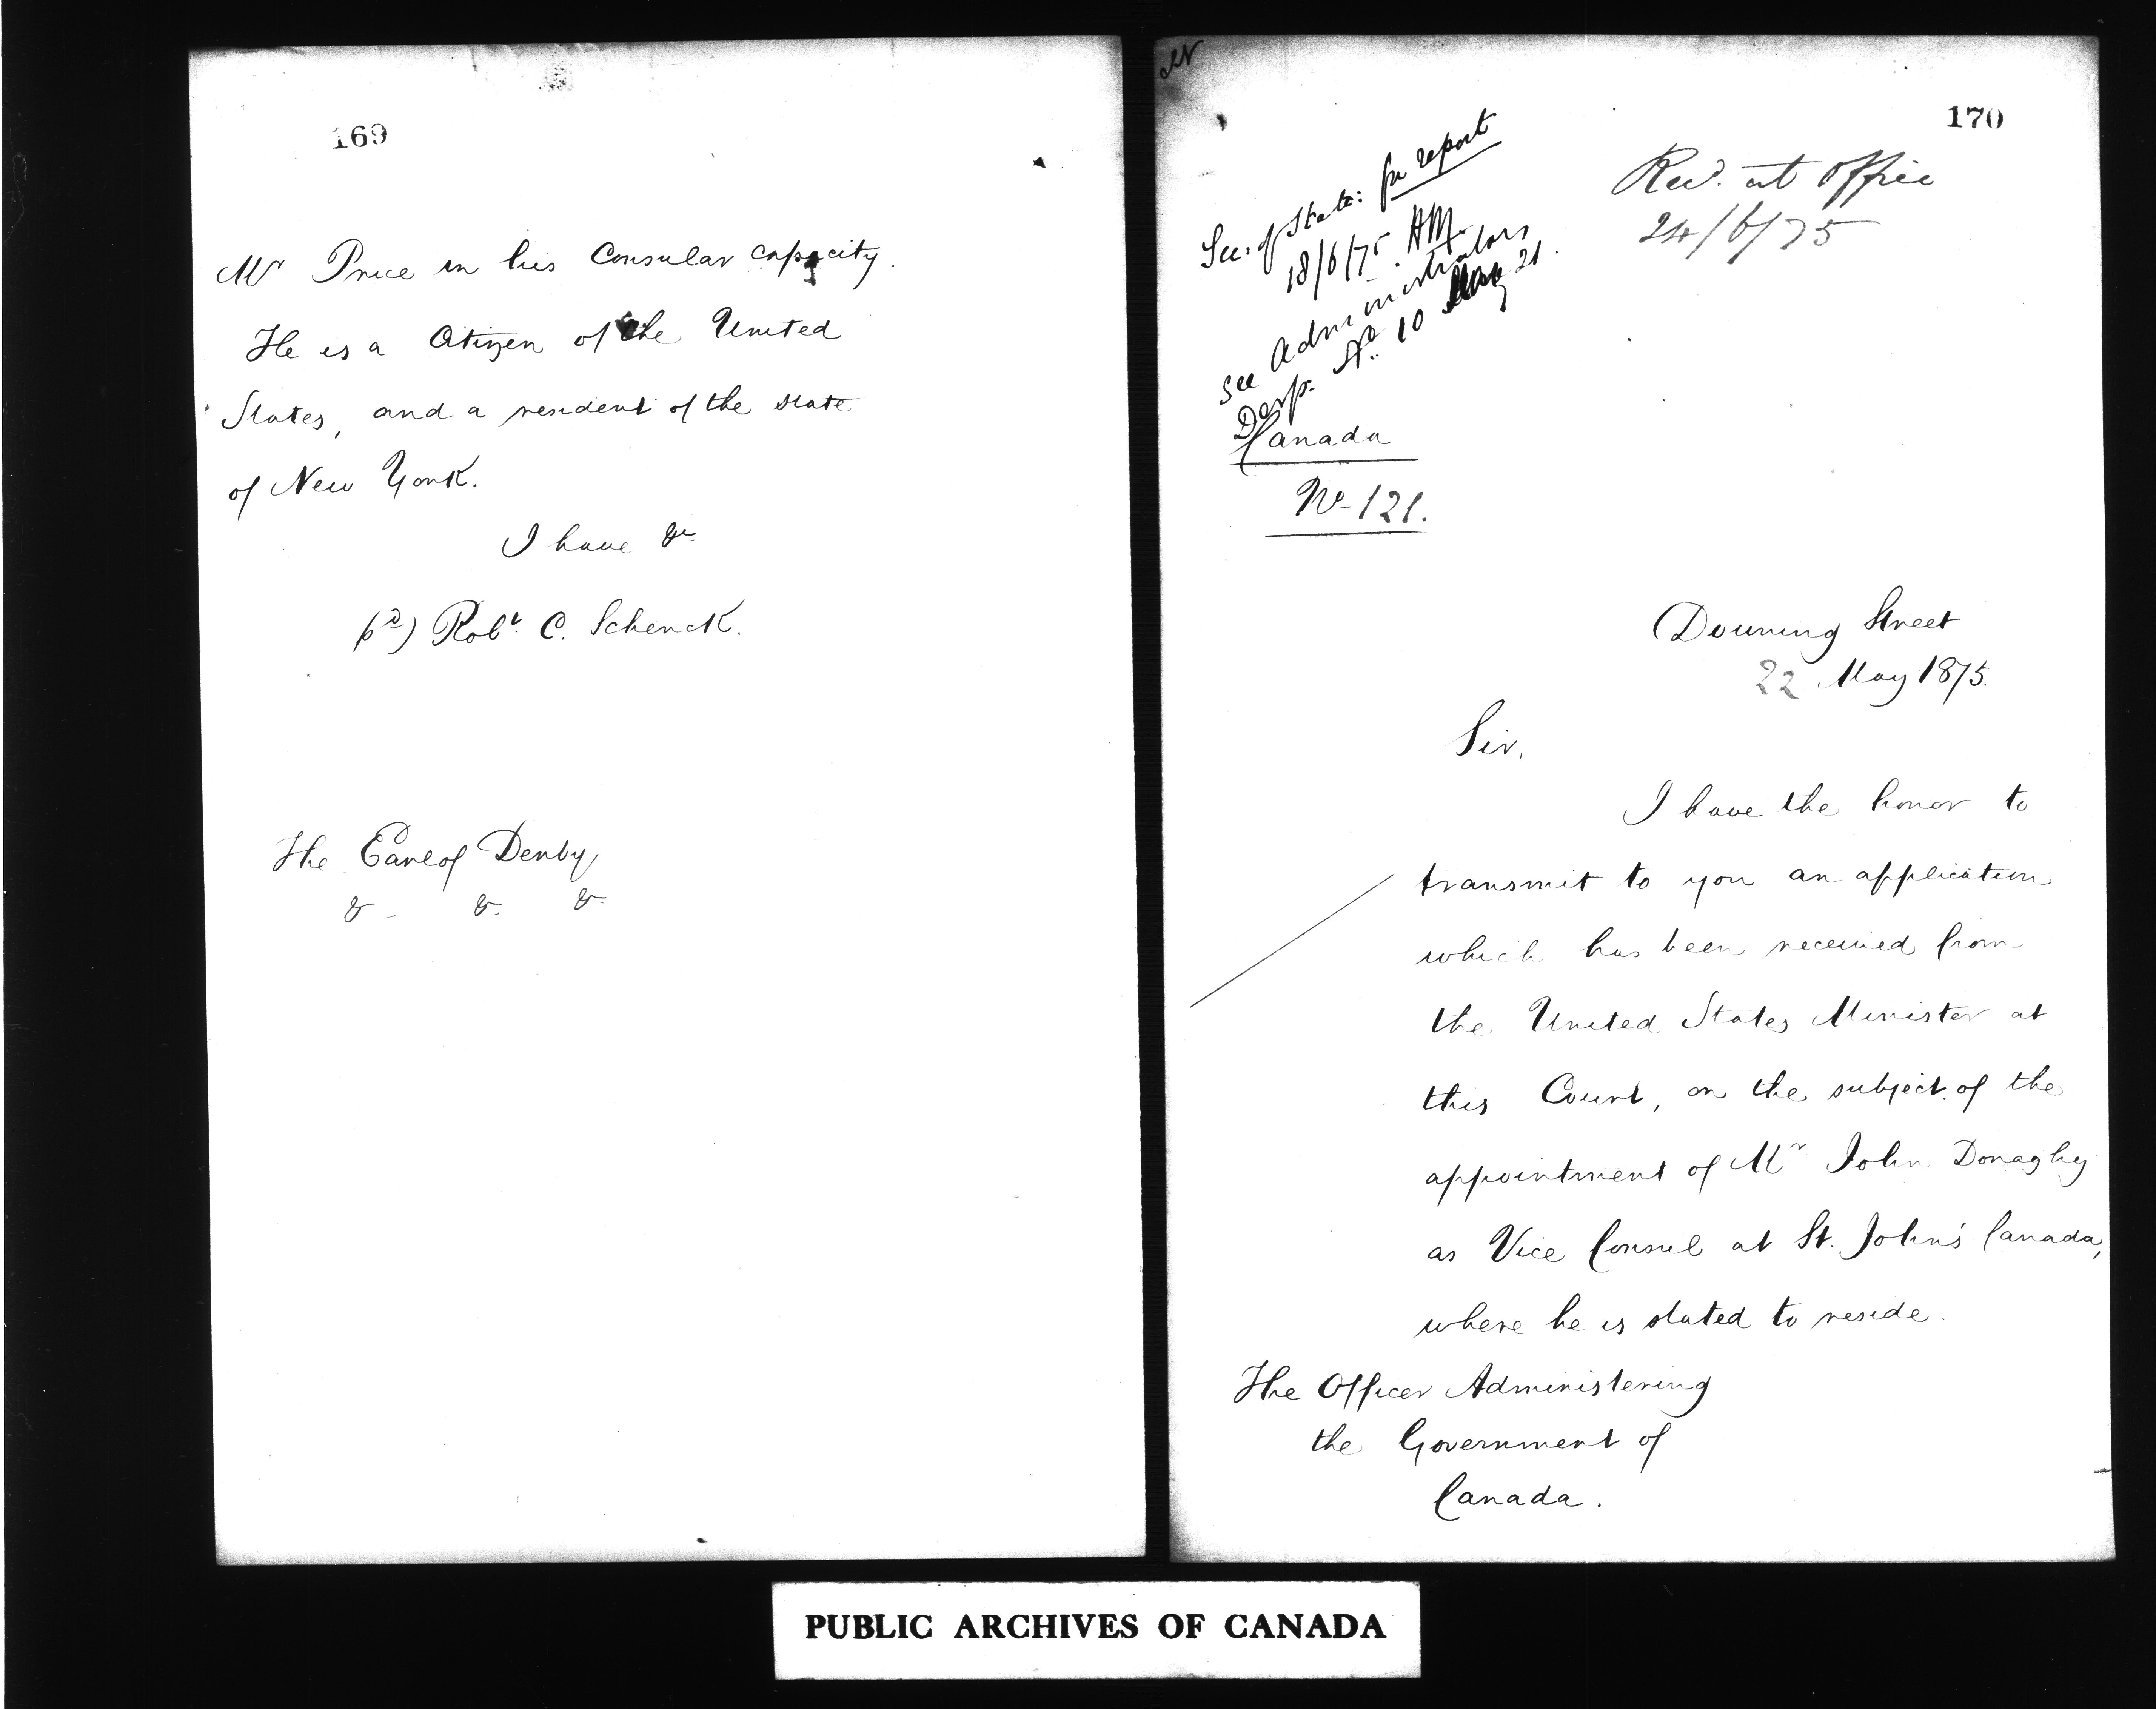 169
Mr Price in his Consular capacity.
He is a Citizen of the United
States, and a resident of the state
of New York.
I have &c
(sd) Robt. C. Schenck.
The Earl of Derby,
&c &c. &c.
170
Sec: of State: for report
18/6/75. HM.
See Administrators
Desp: No. 10 21.
Recd. at Office
24/6/75
Canada
No-121.
Downing Street
22 May 1875.
Sir,
I have the honor to
transmit to you an application
which has been received from
the United States Minister at
this Court, on the subject of the
appointment of Mr John Donaghy
as Vice Consul at St. John's Canada,
where he is stated to reside.
The Officer Administering
the Government of
Canada.
PUBLIC ARCHIVES OF CANADA